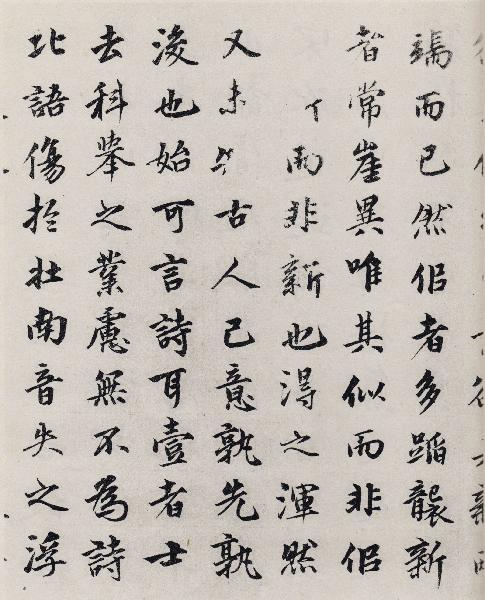 端而已然佀者多蹈襲新
者常崖異唯其似而非佀
而非新也淂之渾然
又未古人己意孰先孰
後也始可言詩耳壹者士
去科舉之業慮無不為詩
北語傷於壯南音失之浮